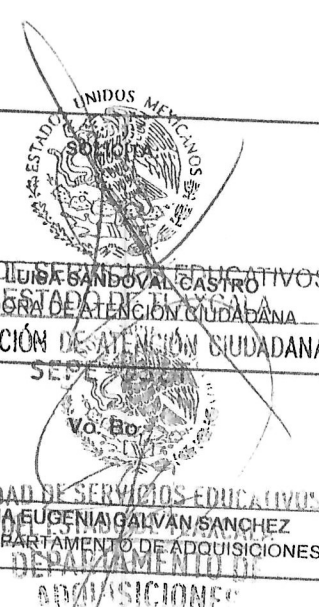 ESTADOS UNIDOS MEXICANOS
SOLICITA
DE SERVICIOS EDUCATIVOS
LUISA SANDOVAL CASTRO
ESTADO DE TLAXCALA
ORA DE ATENCIÓN CIUDADANA
CIÓN DE ATENCIÓN CIUDADANA
Vo. Bo.
DAD DE SERVICIOS EDUCATIVOS
A EUGENIA GALVAN SANCHEZ
PARTAMENTO DE ADQUISICIONES
DEPARTAMENTO DE
ADQUISICIONES